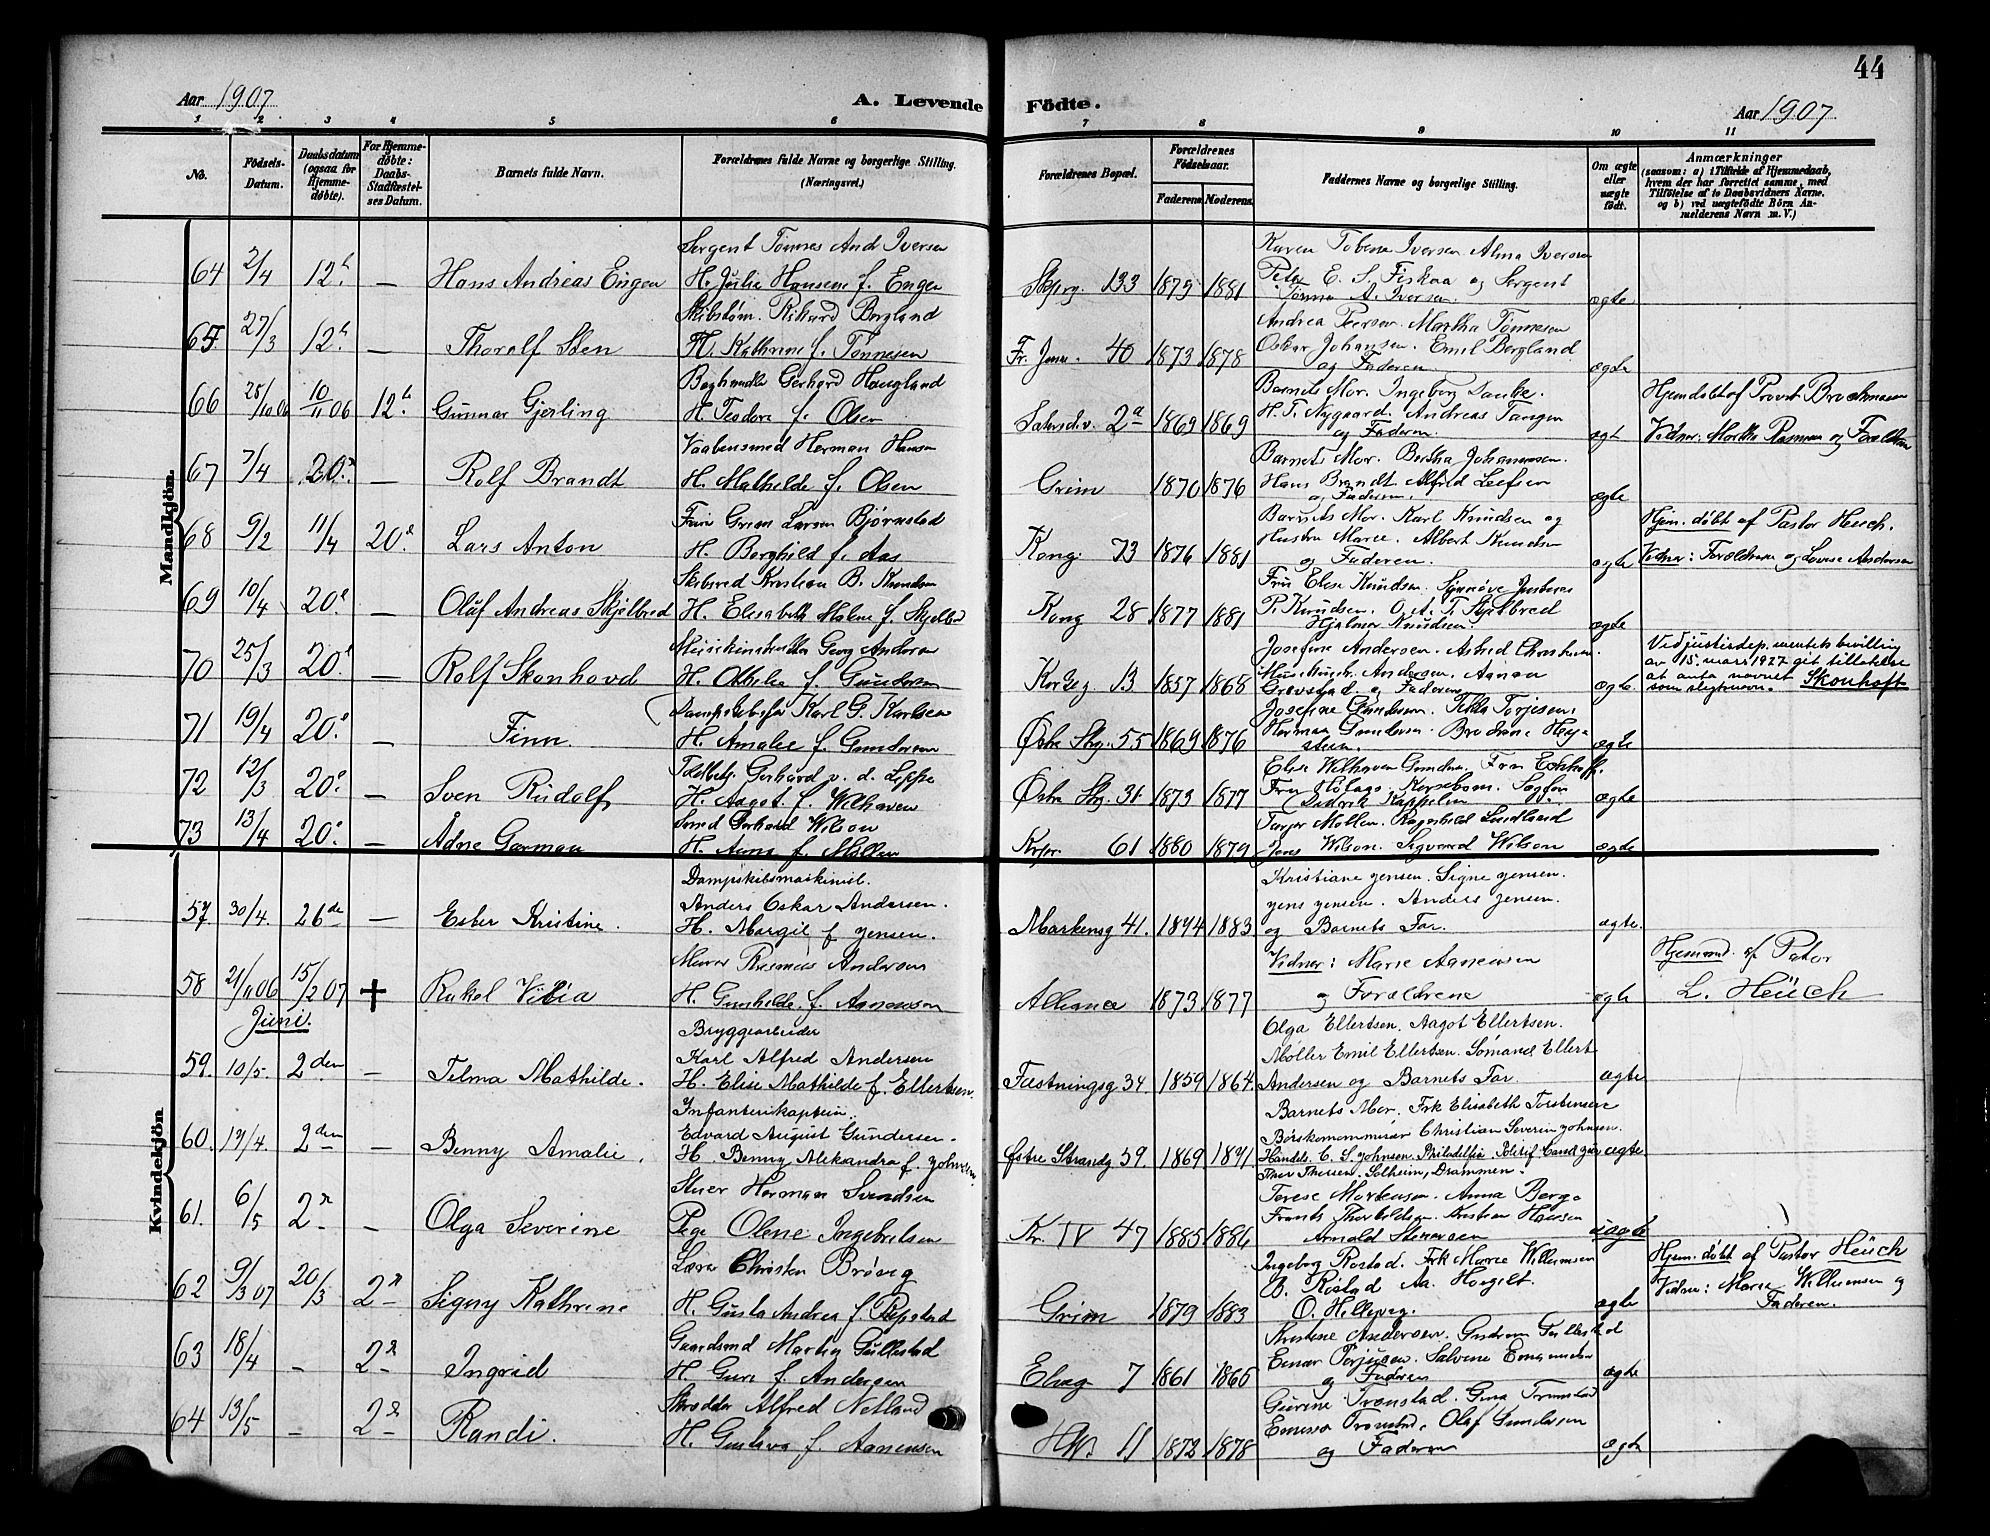 44
Aar 1907
A. Levende Födte.
Aar 1907
1 2 3 4 5 6 7 8 9 10 11
No.
Födsels-Datum.
Daabsdatum (ogsaa for Hjemme-döbte).
For Hjemme-döbte: Daabs-Stadfæstel-ses Datum.
Barnets fulde Navn.
Forældrenes fulde Navne og borgerlige Stilling. (Næringsvei.)
Forældrenes Bopæl.
Forældrenes Födselsaar.
Faderens Moderens.
Faddernes Navne og borgerlige Stilling.
Om ægte eller uægte födt.
Anmærkninger
(saasom: a) i Tilfælde af Hjemmedaab, hvem der har forrettet samme, med Tilföielse af to Daabsvidners Navne, og b) ved uægtefödte Börn An-melderens Navn m. V.)
Mandkjön.
64 2/4 12te — Hans Andreas Engen
Sergent Tønnes And Iversen
H. Julie Hansene f. Engen
133 1879 1881
Karen Tobene Iversen Alma Iversen
Peter E. S. Fiskaa og Sergent
Tønnes A. Iversen.
ægte
65 27/3 12te — Thoralf Sten
Skibstøm. Rikard Bergland
H. Kathrine f. Tønnesen
Fr. 40 1873 1878
Andrea Peersen. Martha Tønnesen
Oskar Johansen. Emil Bergland
og Faderen
ægte
66 25/10 06 10/11 06 12te Gunnar Gjerling
Boghandler Gerhard Haugland
H. Teodora f. Olsen
2a 1869 1869
Barnets Mor. Ingeborg
H. T. Nygaard. Andreas Tangen
og Faderen.
ægt
Hjemdøbt af Provst Brochmann
Vidner: Marthe og Forældrene
67 7/4 20de — Rolf Brandt
Vaabensmed Herman Hansen
H. Mathilde f. Olsen
Grim 1870 1876
Barnets Mor. Bertha Johannesen.
Hans Brandt. Alfred Leefsen
og Faderen.
ægte
68 9/2 11/4 20de Lars Anton
Grim Larsen Bjørnstad
H. Borghild f. Aas
Kong. 73 1876 1881
Barnets Mor. Karl Knudsen og
Hustru Marie. Albert Knudsen
og Faderen.
ægte
Hjem. døbt af Pastor Heuch.
Vidner: Forældrene og Lovise Andersen
69 10/4 20de — Oluf Andreas Skjelbred
Skibsred Kristian B. Knudsen
H. Elisabeth Malene f. Skjelbred
Kong 28 1877 1881
Frus Elise Knudsen.
P. Knudsen. O. A. T. Skjelbred
Hjalmar Knudsen.
ægte
70 25/3 20de Rolf Skonhovd
Georg Andersen
H. Othelie f. Gundersen
13 1857 1865
Josefine Andersen. Astrid Christensen.
Andersen. Aanon
og Faderen
ægte
Vid justisdep.mentets bevilling
av 15. mars 1927 git tillatelse
at anta navnet Skonhoft
som slegtnavn.
71 19/4 20de — Finn.
Karl G. Karlsen
H. Amalie f. Gundersen
Østre Stg. 55 1869 1876
Josefine Gundersen. Tilla Torjesen.
Herman Gundersen.
ægte
72 12/3 20de — Sven Rudolf
Toldbetj. Gerhard v. d. Lippe
H. Aagot f. Welhaven
Østre Stg. 31 1873 1877
Elise Welhaven Fru Eckhoff.
Didrik Kappelen
ægte
73 13/4 20de — Ådne Garman
Smed Gerhard Wilson
H. Anna f. Møllen
61 1880 1879
Møllen. Ragnhild Lundland
Jens Wilson. Sigvard Wilson
ægte
Kvindekjön
57 30/4. 26de — Ester Kristine.
Dampskibsmaskinist.
Anders Oskar Andersen.
H. Margit f. Jensen.
Markensg 41. 1874 1883
Kristiane Jensen. Signe Jensen.
Jens Jensen. Anders Jensen.
og Barnets Far.
ægte.
58 21/11 06 15/2 07 + Rakel Vilia
Murer Rasmus Andersen
H. Gunhilde f. Aanensson
Alliance 1873 1877
Vidner: Marie Aanensen
og Forældrene
ægte
Hjemmd. af Pastor
L. Heuch
Juni.
59. 10/5. 2den — Telma Mathilde.
Bryggearbeider
Karl Alfred Andersen
H. Elise Mathilde f. Ellertsen.
Fæstningsg 34. 1859 1864.
Olga Ellertsen. Aagot Ellertsen.
Møller Emil Ellertsen. Sømand Ellert
Andersen og Barnets Far.
ægte
60. 17/4. 2den — Benny Amalie.
Infanterikaptein.
Edvard August Gundersen.
H. Benny Aleksandra f. Johnsen.
Østre Strandg 59. 1869 1871
Barnets Mor. Frk Elisabeth Torstensen
Børskommisær Christian Severin Johnsen.
Handels. C. S. Johnsen. Philadelfia
Thor Solheim, Drammen.
ægte
61. 6/5 2n — Olga Severine
Stuer Herman Svendsen
Pige Olene Ingebretsen
Kr. IV 47 1885 1886
Terese Mortensen. Anna Berge
Frants Thorkildsen. Kristian Hansen
Arnold Sterensen
uægte
62 9/3 07 20/3 2n Signy Kathrine
Lærer Christen Brøvig
H. Gusta Andrea f. Repstad
Grim 1879 1883
Ingeborg Rostad. Frk Marie Willumsen
B. Røstad Aa.
O. Hillevig.
ægte
Hjem. døbt af Pastor Heuch
Vidne: Marie Willumsen og
Faderen.
63 18/4 — 2n Ingrid
Gaardmd Martin Gullestad
H. Guri f. Andersen
Elveg 7 1861 1865
Kristine Andersen. Gudrun
Einar Torjusen. Salvine
og Faderen
ægte
64 13/5 — 2n Randi.
Skrædder Alfred Netland
H. Gustava f. Aanensen
11 1872 1878
Gurine Tronstad. Gina Tronstad
Tronstad. Olaf Gundersen
og Faderen
ægte